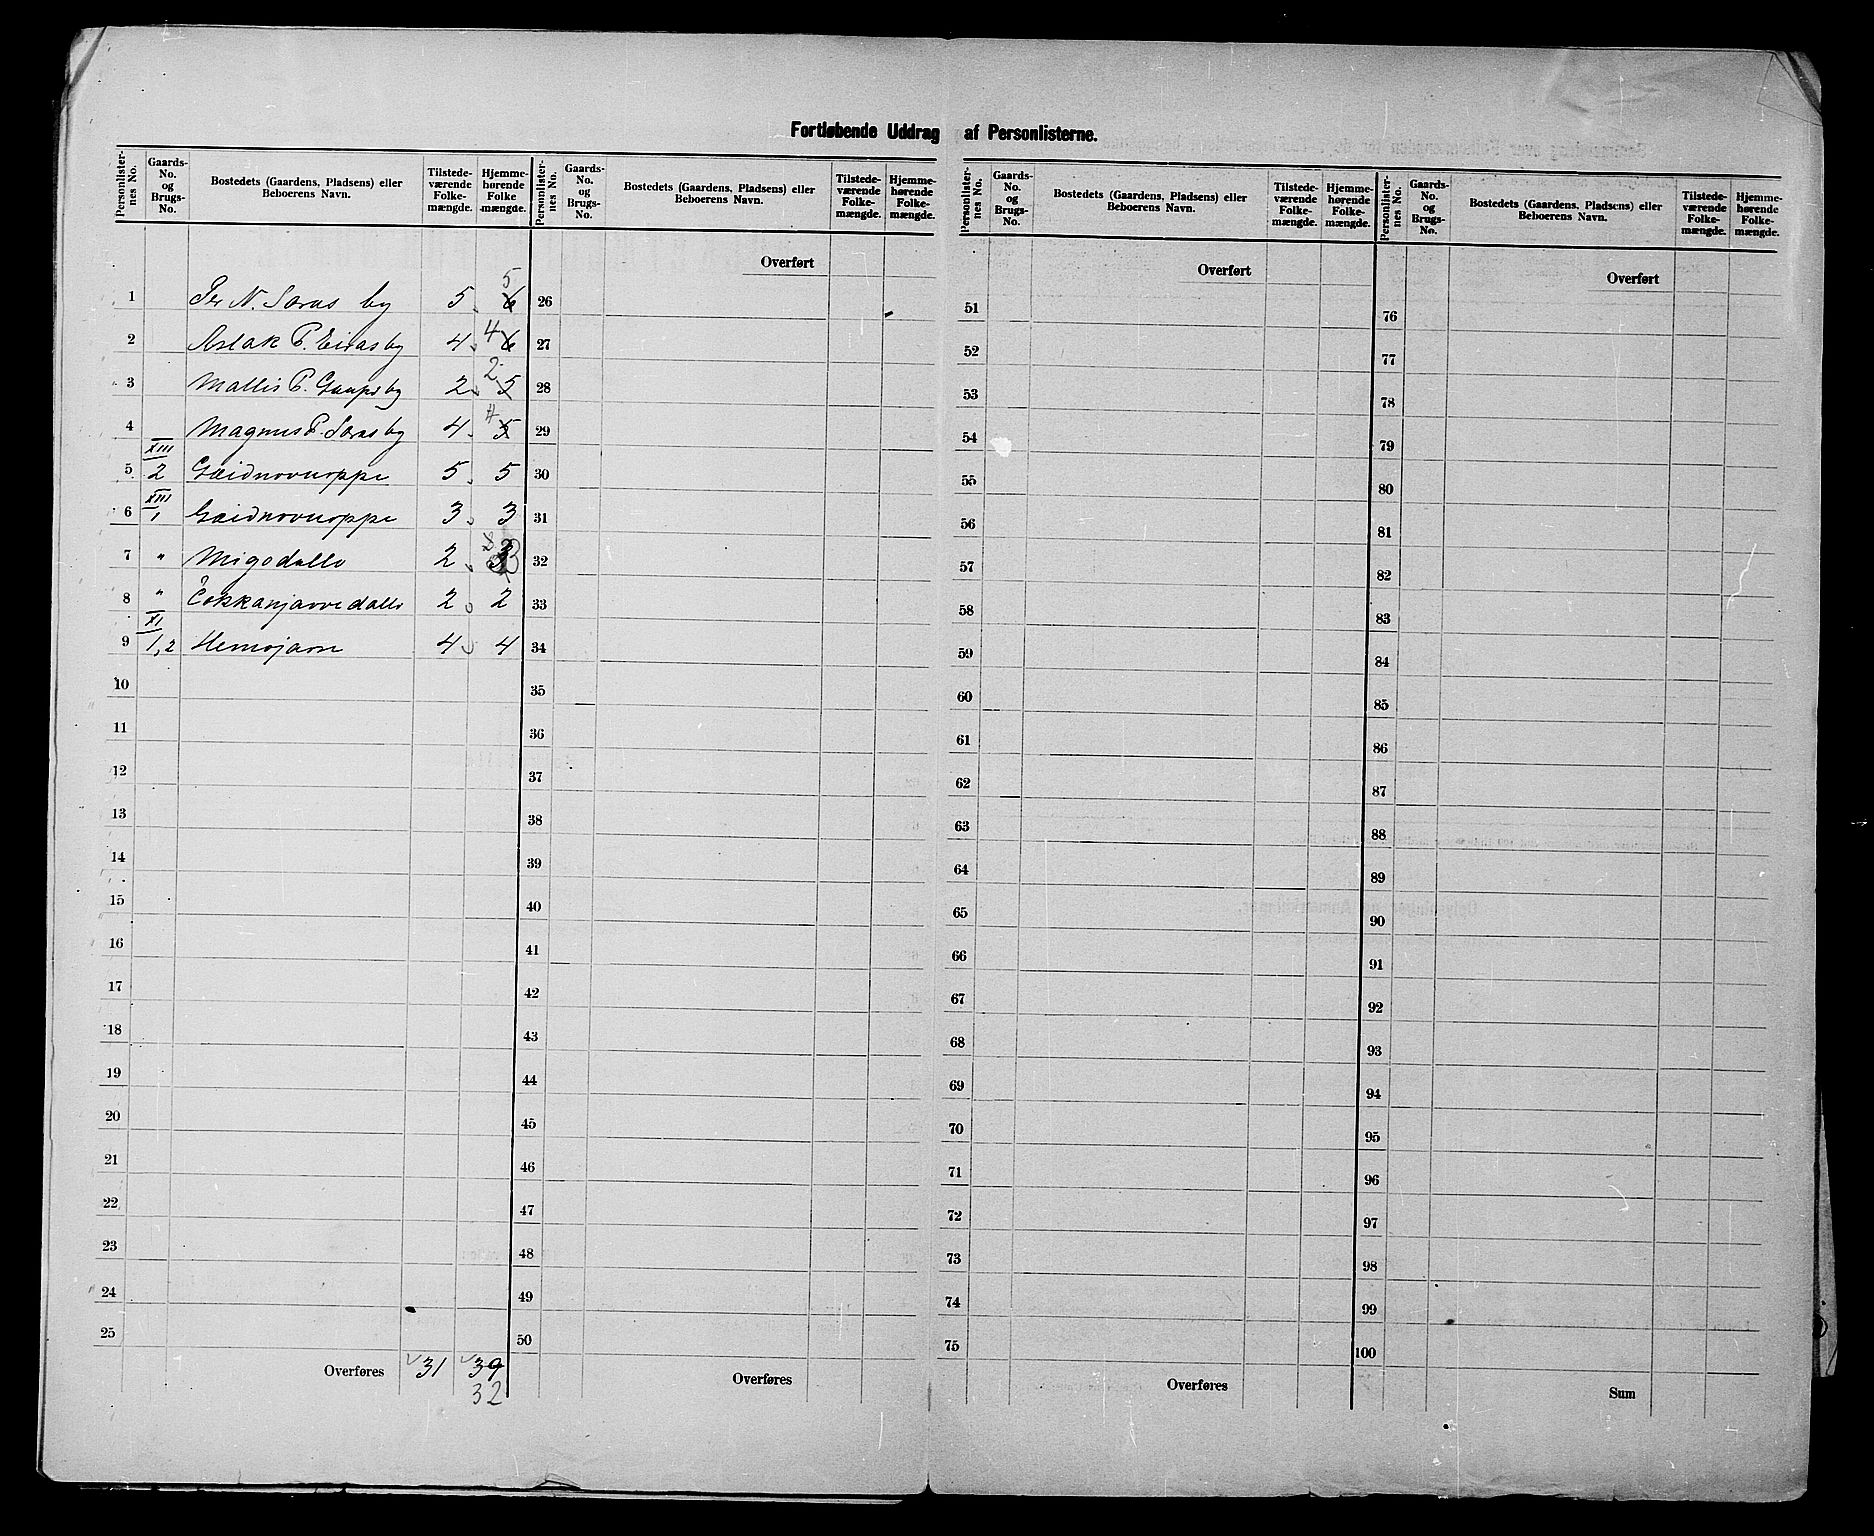 Fortløbende Uddrag af Personlisterne.
Personlister-nes No. | Gaards-No. og Brugs-No. | Bostedets (Gaardens, Pladsens) eller Beboerens Navn. | Tilstede-værende Folke-mængde. | Hjemme-hørende Folke mængde.
1 Per N. Saras by 5 6 5
2 Aslak P. Eiras by 4 6 4
3 Mallis P. Gaups by 2 5 2
4 Magnus P. Saras by 4 5 4
5 XIII 2 Gæidnovuoppe 5 5
6 XIII 1 Gæidnovuoppe 3 3
7 " 2 3
8 " 2 2
9 XI 1,2 4 4
10
11
12
13
14
15
16
17
18
19
20
21
22
23
24
25
Overføres 31 39
32
Personlister-nes No. | Gaards-No. og Brugs-No. | Bostedets (Gaardens, Pladsens) eller Beboerens Navn. | Tilstede-værende Folke-mængde. | Hjemme-hørende Folke-mængde.
Overført
26
27
28
29
30
31
32
33
34
35
36
37
38
39
40
41
42
43
44
45
46
47
48
49
50
Overføres
Personlister-nes No. | Gaards-No. og Brugs-No. | Bostedets (Gaardens, Pladsens) eller Beboerens Navn. | Tilstede-værende Folke-mængde. | Hjemme-hørende Folke-mængde.
Overført
51
52
53
54
55
56
57
58
59
60
61
62
63
64
65
66
67
68
69
70
71
72
73
74
75
Overføres
Personlister-nes No. | Gaards-No. og Brugs-No. | Bostedets (Gaardens, Pladsens) eller Beboerens Navn. | Tilstede-værende Folke-mængde. | Hjemme-hørende Folke-mængde.
Overført
76
77
78
79
80
81
82
83
84
85
86
87
88
89
90
91
92
93
94
95
96
97
98
99
100
Sum